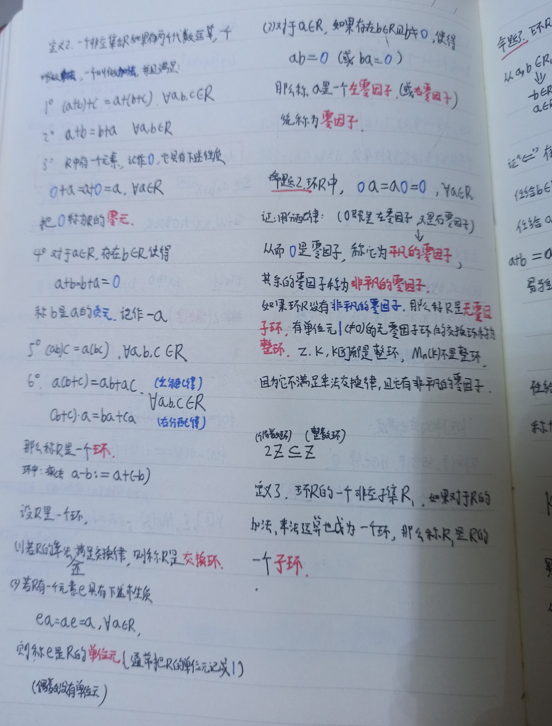 定义2. 一个非空集合R如果有两个代数运算, 一个
叫做加法, 一个叫做乘法, 并且满足:
1° (a+b)+c = a+(b+c), ∀a,b,c∈R
2° a+b=b+a ∀a,b∈R
3° R中有一个元素, 记作0, 它具有下述性质
0+a=a+0=a, ∀a∈R
把0称为R的零元.
4° 对于a∈R, 存在b∈R, 使得
a+b=b+a=0
称b是a的负元, 记作-a
5° (ab)c=a(bc), ∀a,b,c∈R
6° a(b+c)=ab+ac (左分配律)
∀a,b,c∈R
(b+c)·a=ba+ca (右分配律)
那么称R是一个环.
环中: 减法 a-b:=a+(-b)
设R是一个环,
(1)若R的乘法还满足交换律, 则称R是交换环.
(2)若R有一个元素e具有下述性质
ea=ae=a, ∀a∈R,
则称e是R的单位元(通常把R的单位元记成1)
(偶数环没有单位元)
(3)对于a∈R, 如果存在b∈R且b≠0, 使得
ab=0 (或ba=0)
那么称a是一个左零因子(或右零因子)
统称为零因子.
命题2. 环R中, 0a=a0=0, ∀a∈R
证: 用分配律: (0既是左零因子又是右零因子)
从而0是零因子, 称它为平凡的零因子,
其余的零因子称为非平凡的零因子.
如果环R没有非平凡的零因子, 那么称R是无零因
子环. 有单位元1(≠0)的无零因子环的交换环称为
整环. Z, K, K[x]都是整环, Mn(K)不是整环,
因为它不满足乘法交换律, 且它有非平凡的零因子.
(偶数环) (整数环)
2Z ⊆ Z
定义3. 环R的一个非空子集R₁, 如果对于R的
加法, 乘法运算也成为一个环, 那么称R₁是R的
一个子环.
命题3. 环R
从a,b∈R₁
b∈R
a∈R
证"⇐"
任给b∈
任给a
a+b=a